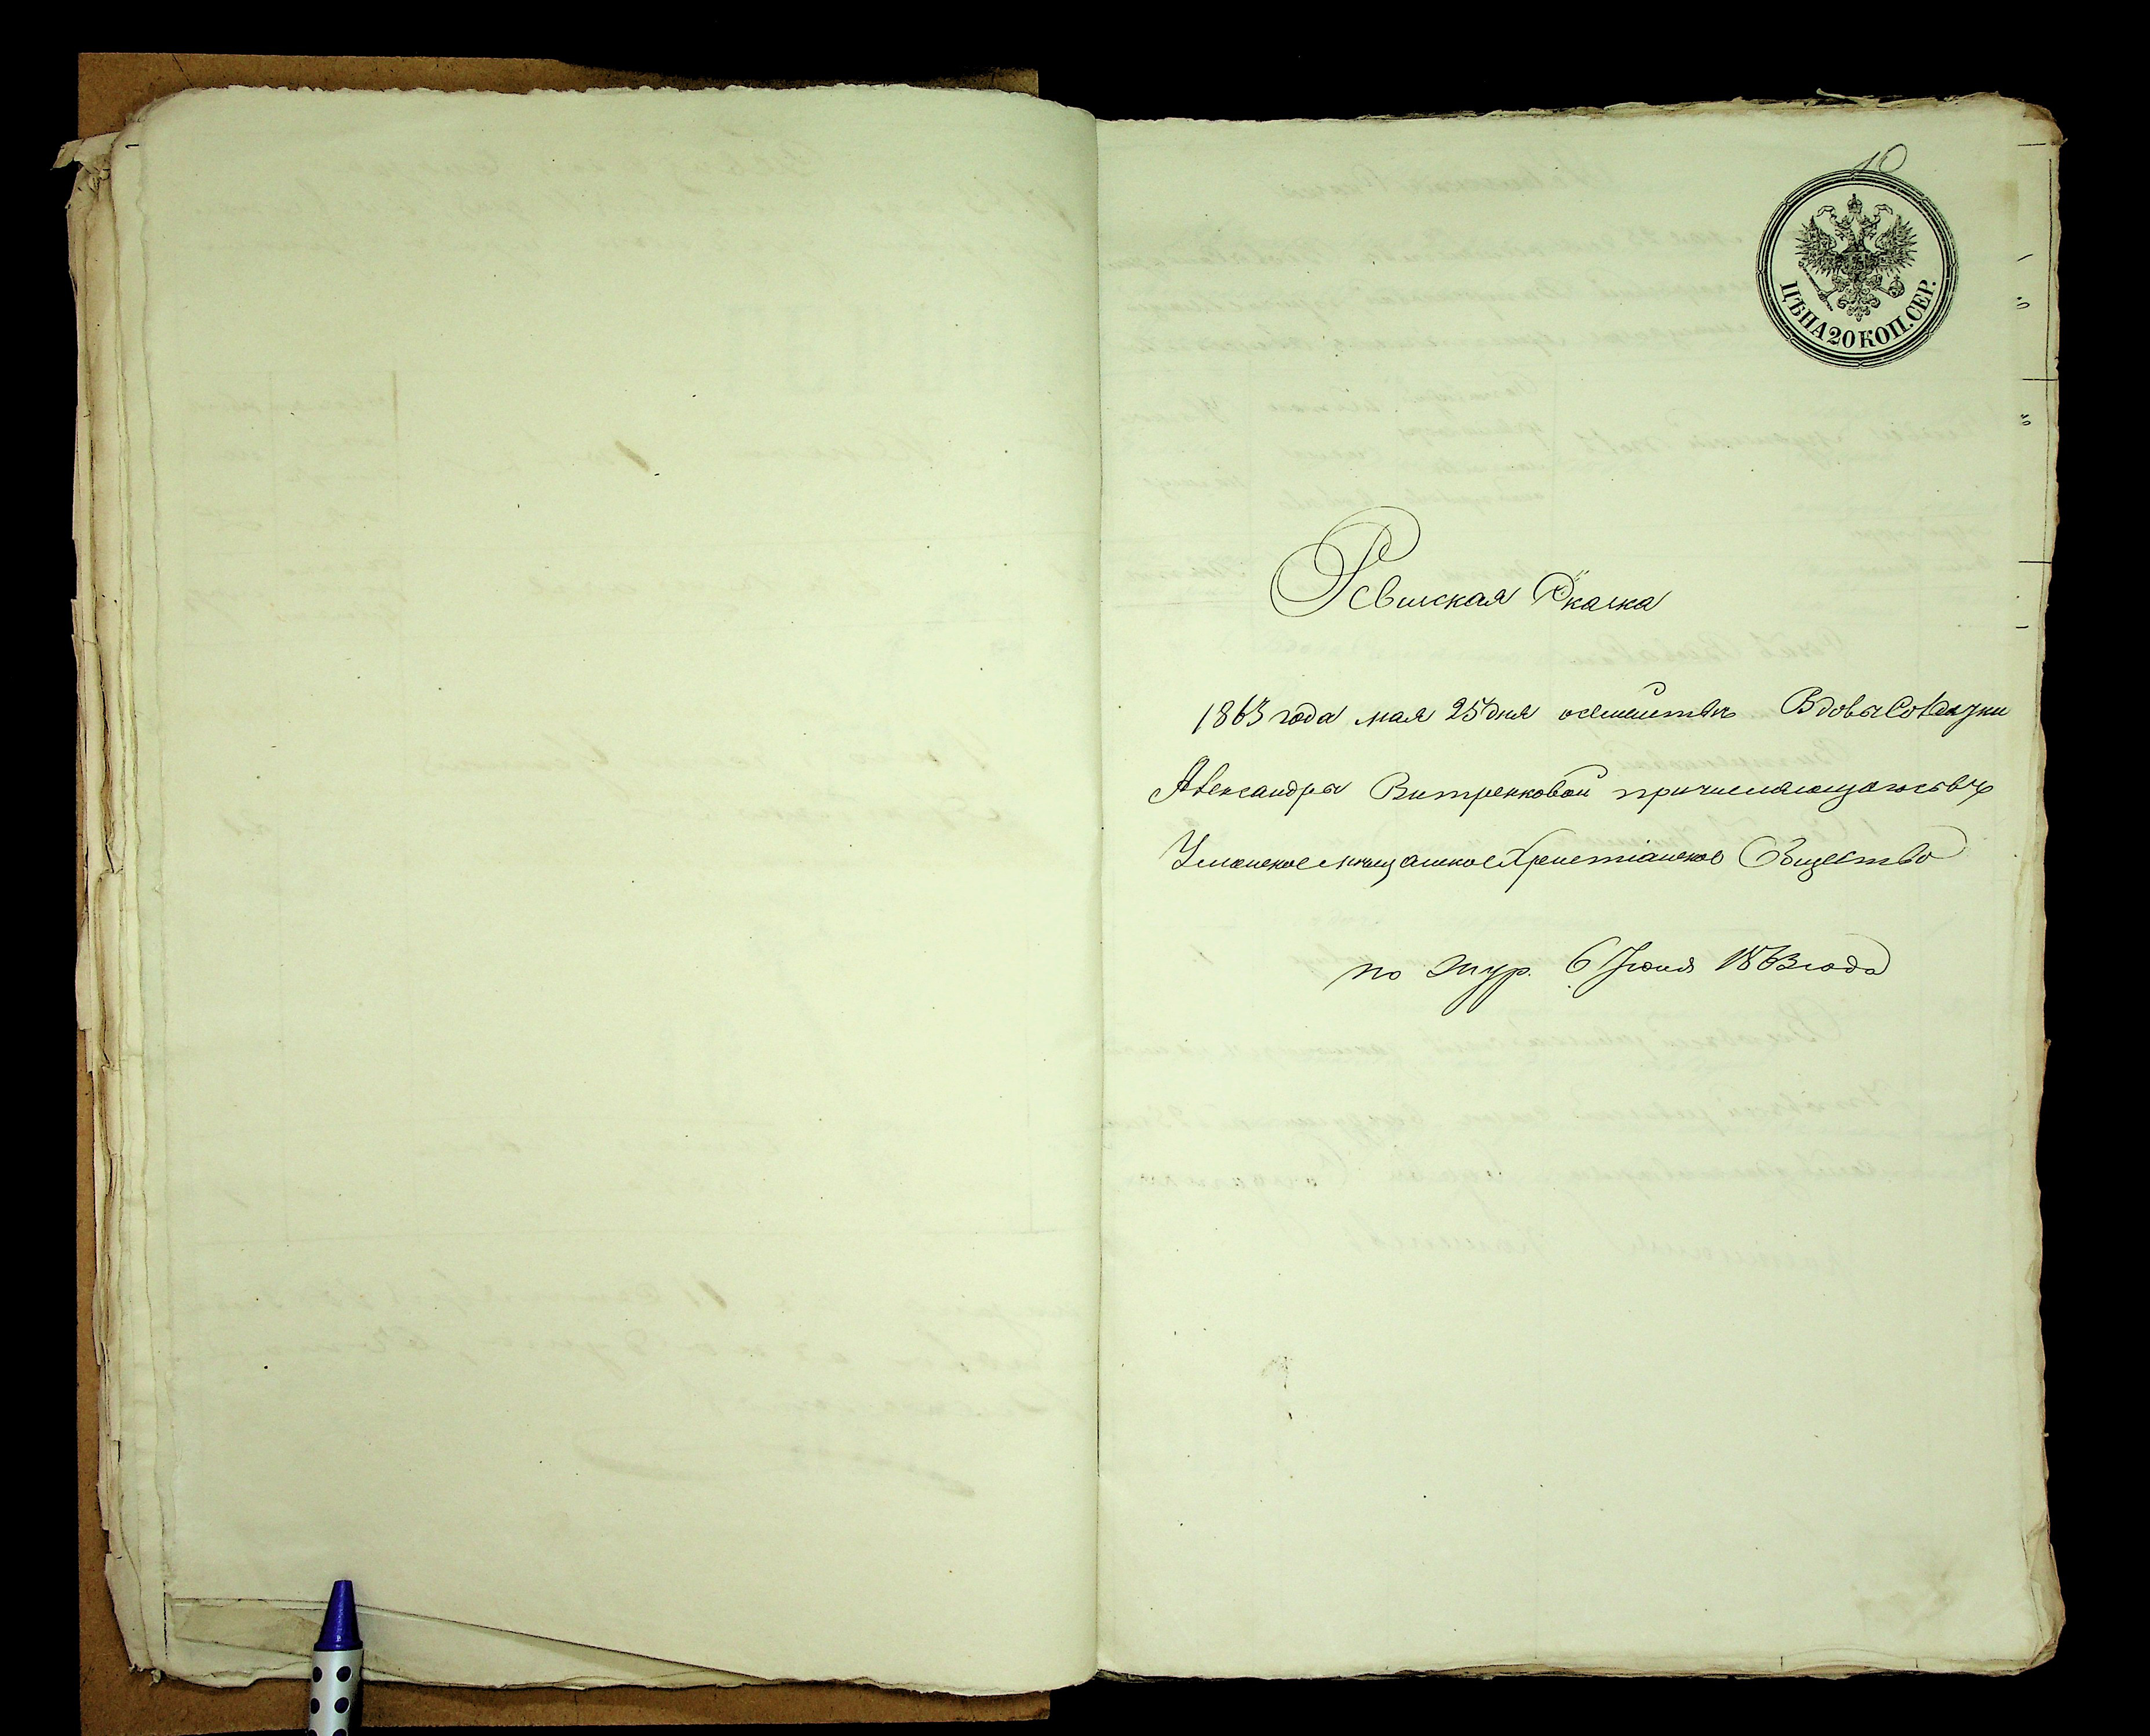 10
ЦѢНА 20 КОП. СЕР.
Ревизская Скаска
1863 года мая 25 дня осемействѣ Вдовы Солдатки
Александры Витренковой причисляющагося въ
Уманское мѣщанское Христіанское Общество
по жур. 6 Іюня 1863 года